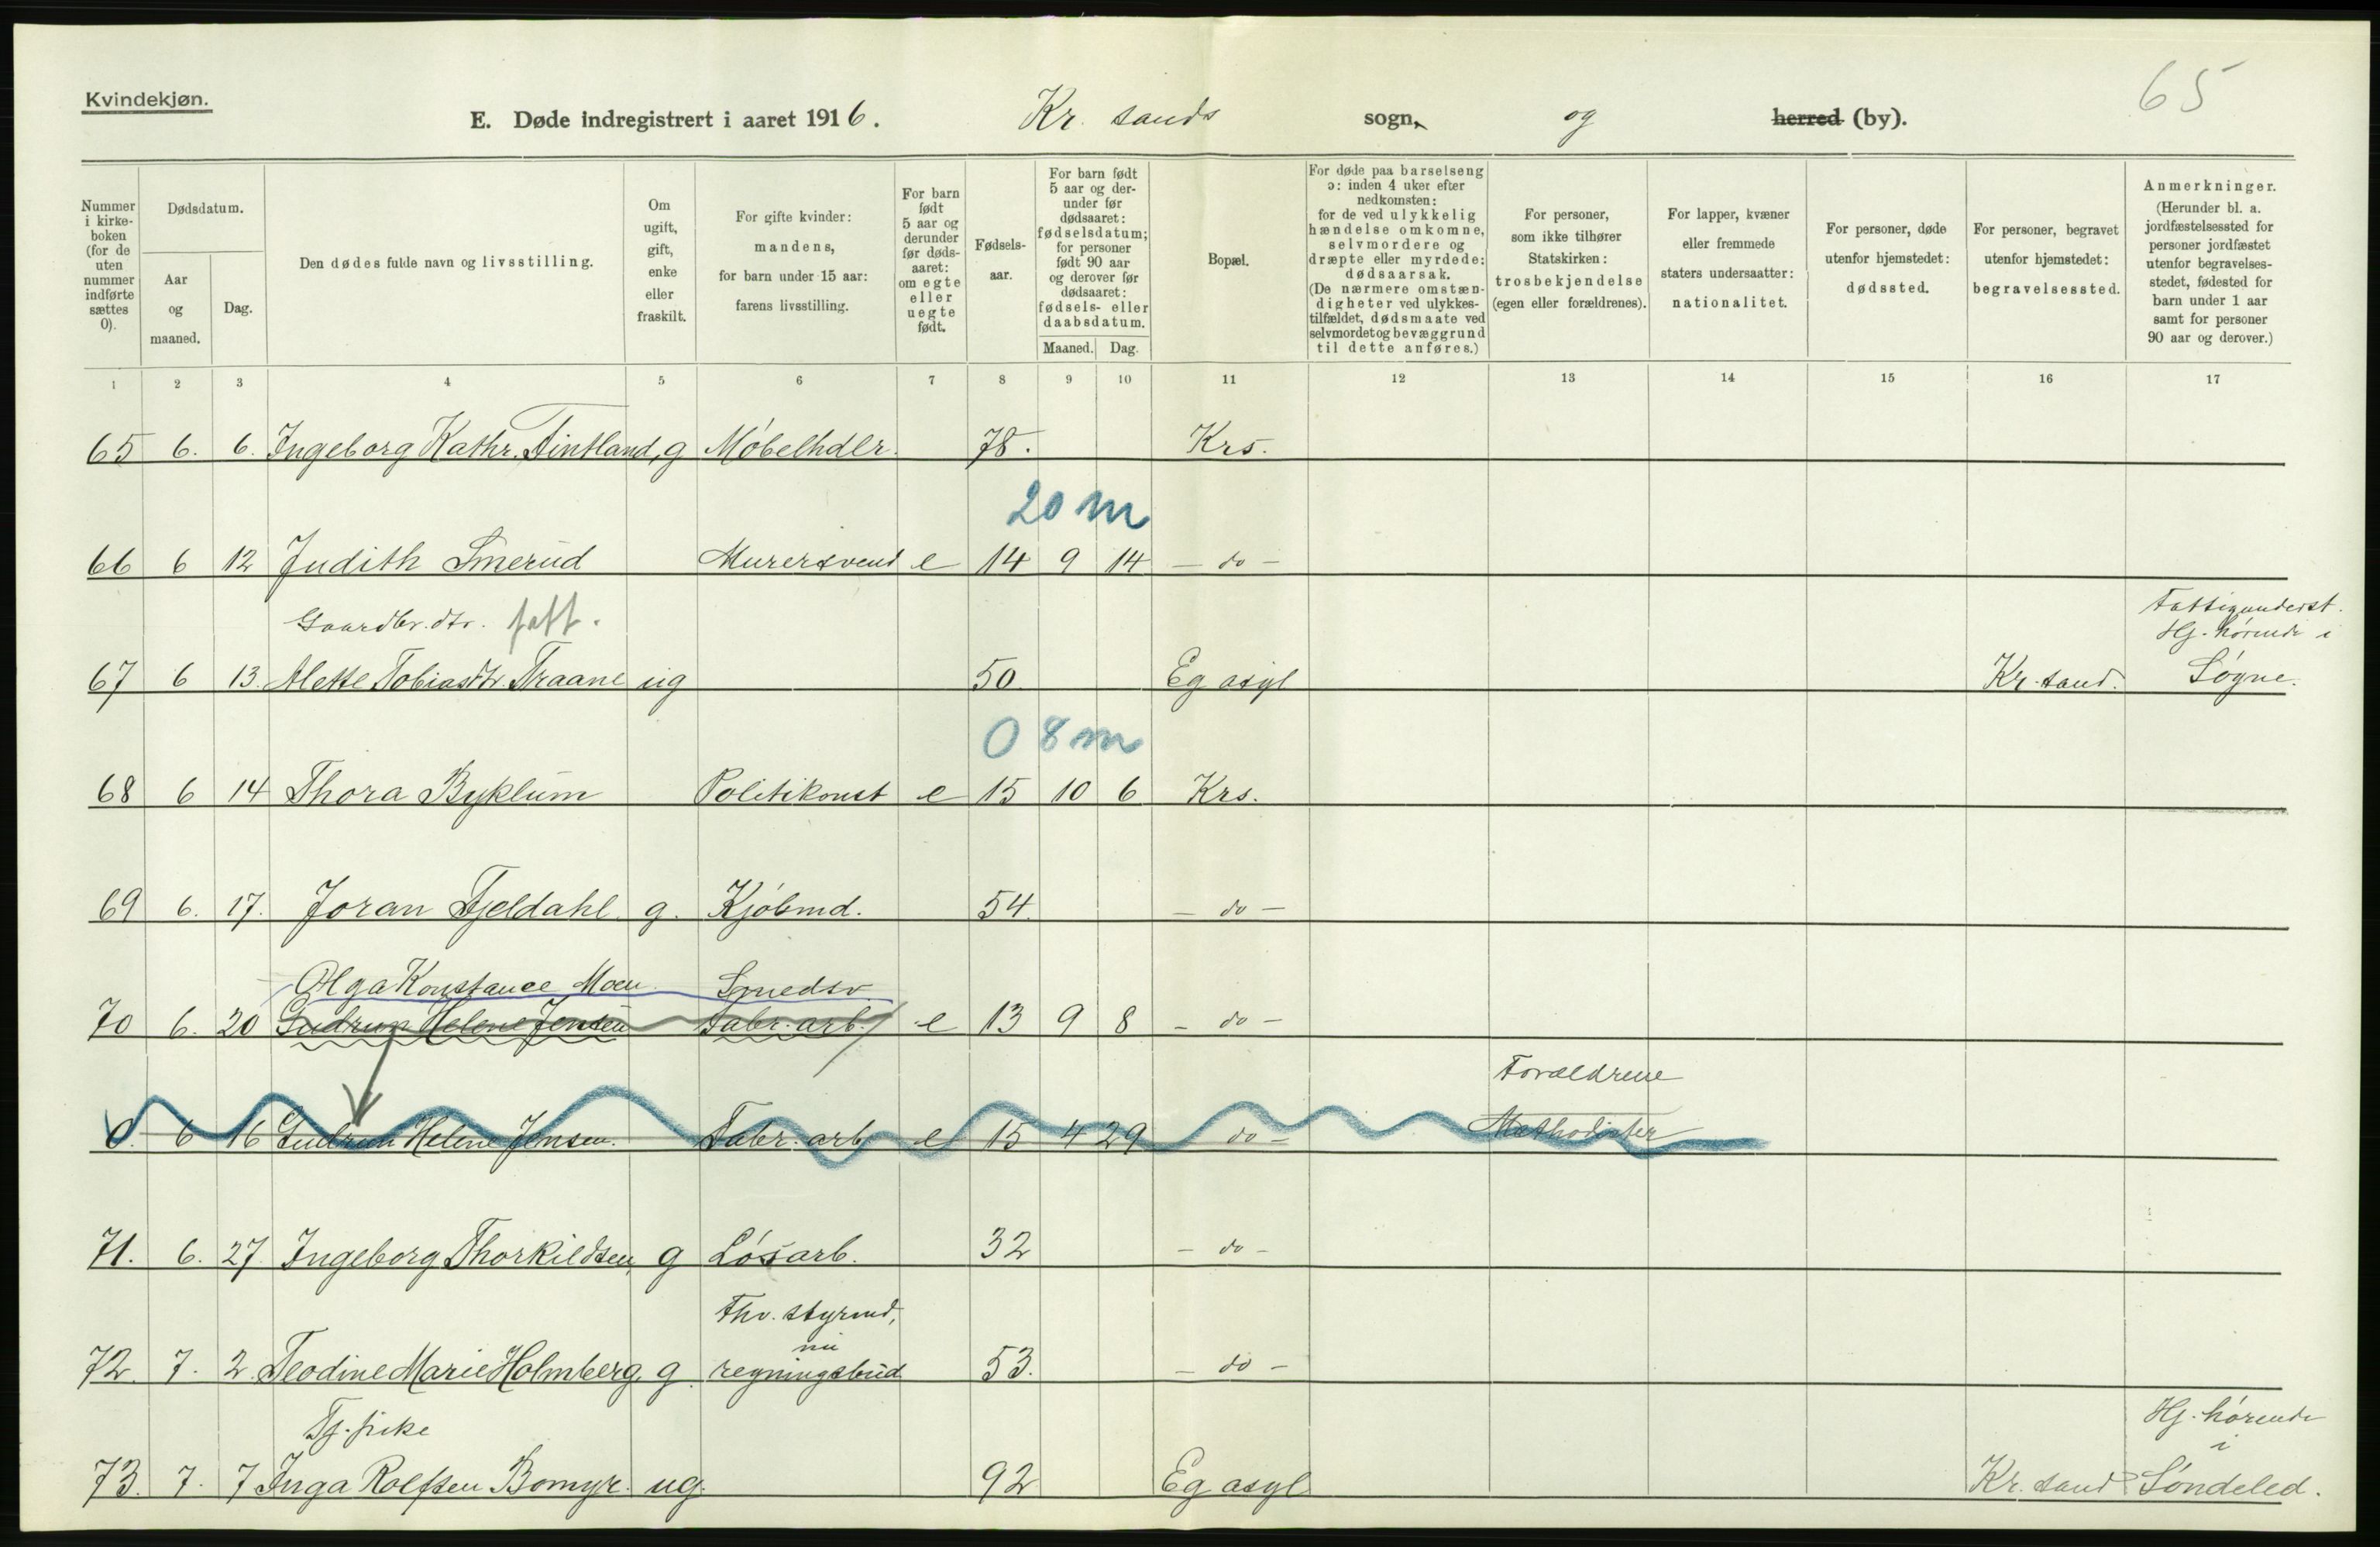 65
Kvindekjøn.
E. Døde indregistrert i aaret 1916. Kr. sands sogn, og herred (by).
Nummer i kirkeboken (for de uten nummer indførte sættes 0).
Dødsdatum.
Aar og maaned.
Dag.
Den dødes fulde navn og livsstilling.
Om ugift, gift, enke eller fraskilt.
For gifte kvinder: mandens, for barn under 15 aar: farens livsstilling.
For barn født 5 aar og derunder før dødsaaret: om egte eller uegte født.
Fødselsaar.
For barn født 5 aar og derunder før dødsaaret: fødselsdatum; for personer født 90 aar og derover før dødsaaret: fødsels- eller daabsdatum.
Maaned. Dag.
Bopæl.
For døde paa barselseng ɔ: inden 4 uker efter nedkomsten: for de ved ulykkelig hændelse omkomne, selvmordere og dræpte eller myrdede: dødsaarsak. (De nærmere omstændigheter ved ulykkestilfældet, dødsmaate ved selvmordet og bevæggrund til dette anføres.)
For personer, som ikke tilhører Statskirken: trosbekjendelse (egen eller forældrenes).
For lapper, kvæner eller fremmede staters undersaatter: nationalitet.
For personer, døde utenfor hjemstedet: dødssted.
For personer, begravet utenfor hjemstedet: begravelsessted.
Anmerkninger. (Herunder bl. a. jordfæstelsessted for personer jordfæstet utenfor begravelsesstedet, fødested for barn under 1 aar samt for personer 90 aar og derover.)
1 2 3 4 5 6 7 8 9 10 11 12 13 14 15 16 17
65 6. 6. Ingeborg Kathr. Tintland, g Møbelhdlr. 78. Krs.
20 m
66 6 12 Judith Smerud Murersvend e 14 9 14 — do —
Gaardbr. dtr. fatt. Fattigunderst. Hj. hørende i
67 6 13. Mette Tobiasdtr. Traane ug 50. Eg asyl Kr. sand. Søgne.
0 8 m
68 6 14 Thora Byklum Politikonst e 15 10 6 Krs.
69 6. 17. Joran Fjeldahl g. Kjøbmd. 54. — do —
Olga Konstance Moen Smedsv.
70 6. 20 Gudrun Helene Jensen Fabr. arb. e 13 9 8 — do —
Forældrene
0. 6 16 Gudrun Helene Jensen. Fabr. arb e 15 4 29 do — Methodister
71. 6. 27 Ingeborg Thorkildsen g Løsarb. 32 — do —
Fhv. styrmd,
nu
72. 7. 2. Teodine Marie Holmberg. g regningsbud 53. — do —
Tj. pike Hj. hørende
i
73. 7. 7 Inga Rolfsen Bomyr. ug. 92 Eg asyl Kr. sand Søndeled.